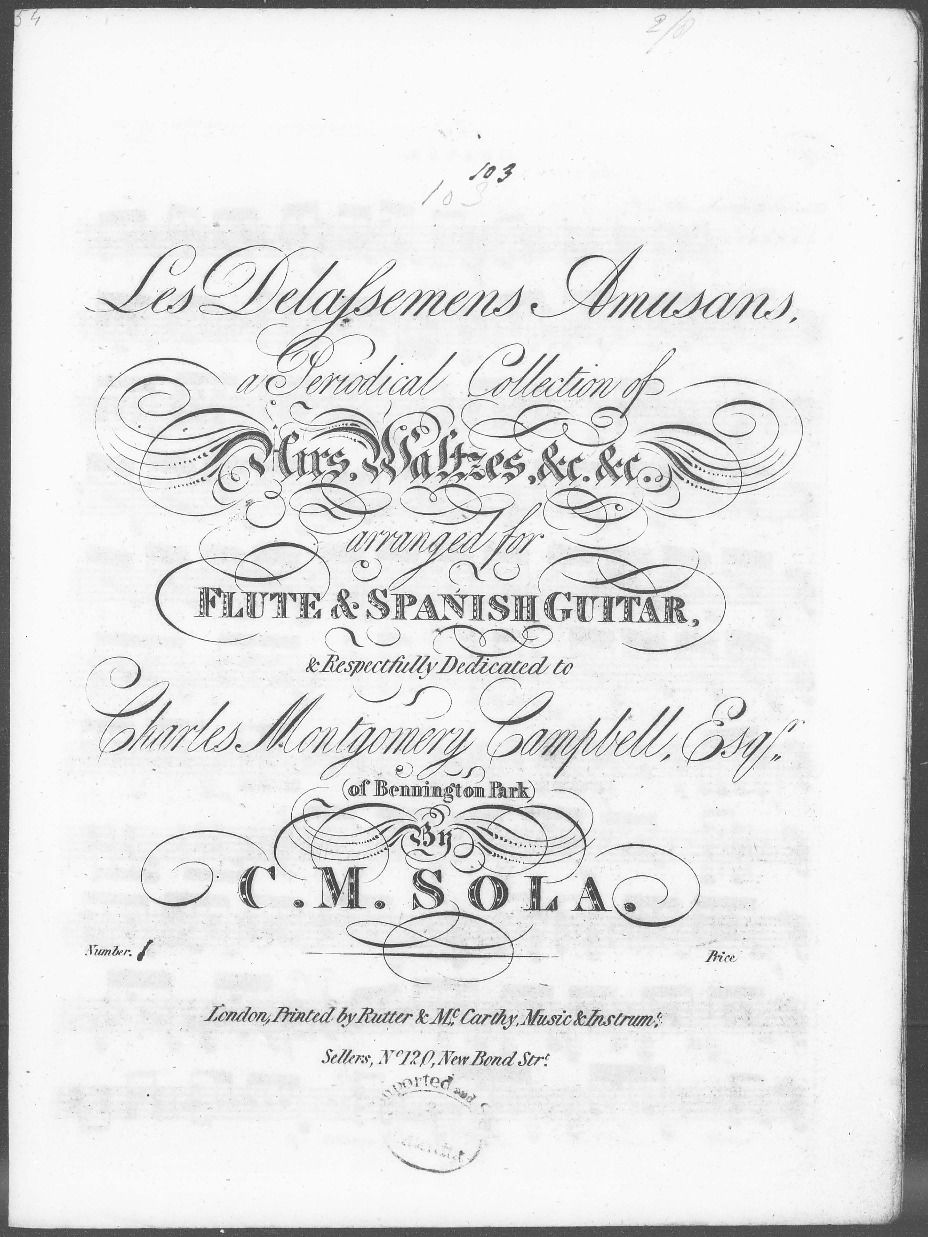 54
2/6
103
103
Les Delaſsemens Amusans,
a Periodical Collection of
Airs, Waltzes, &c. &c.
arranged for
FLUTE & SPANISH GUITAR,
& Respectfully Dedicated to
Charles Montgomery Campbell, Esqr.
(of Bennington Park)
By
C. M. SOLA.
Number. 1
Price
London, Printed by Rutter & Mc. Carthy, Music & Instrumt.
Sellers, No 120, New Bond Strt.
mported and